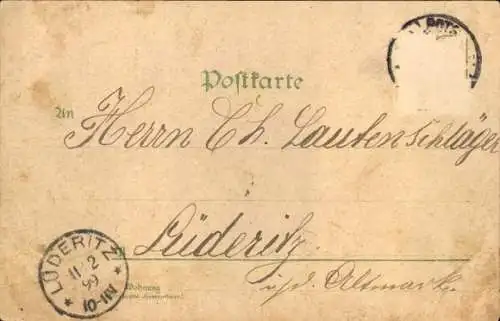 Postkarte
An Herrn Ch. Lautenschläger
Lüderitz
i./d. Altmark.
Wohnung
LÜDERITZ
11 2
99
10-11V